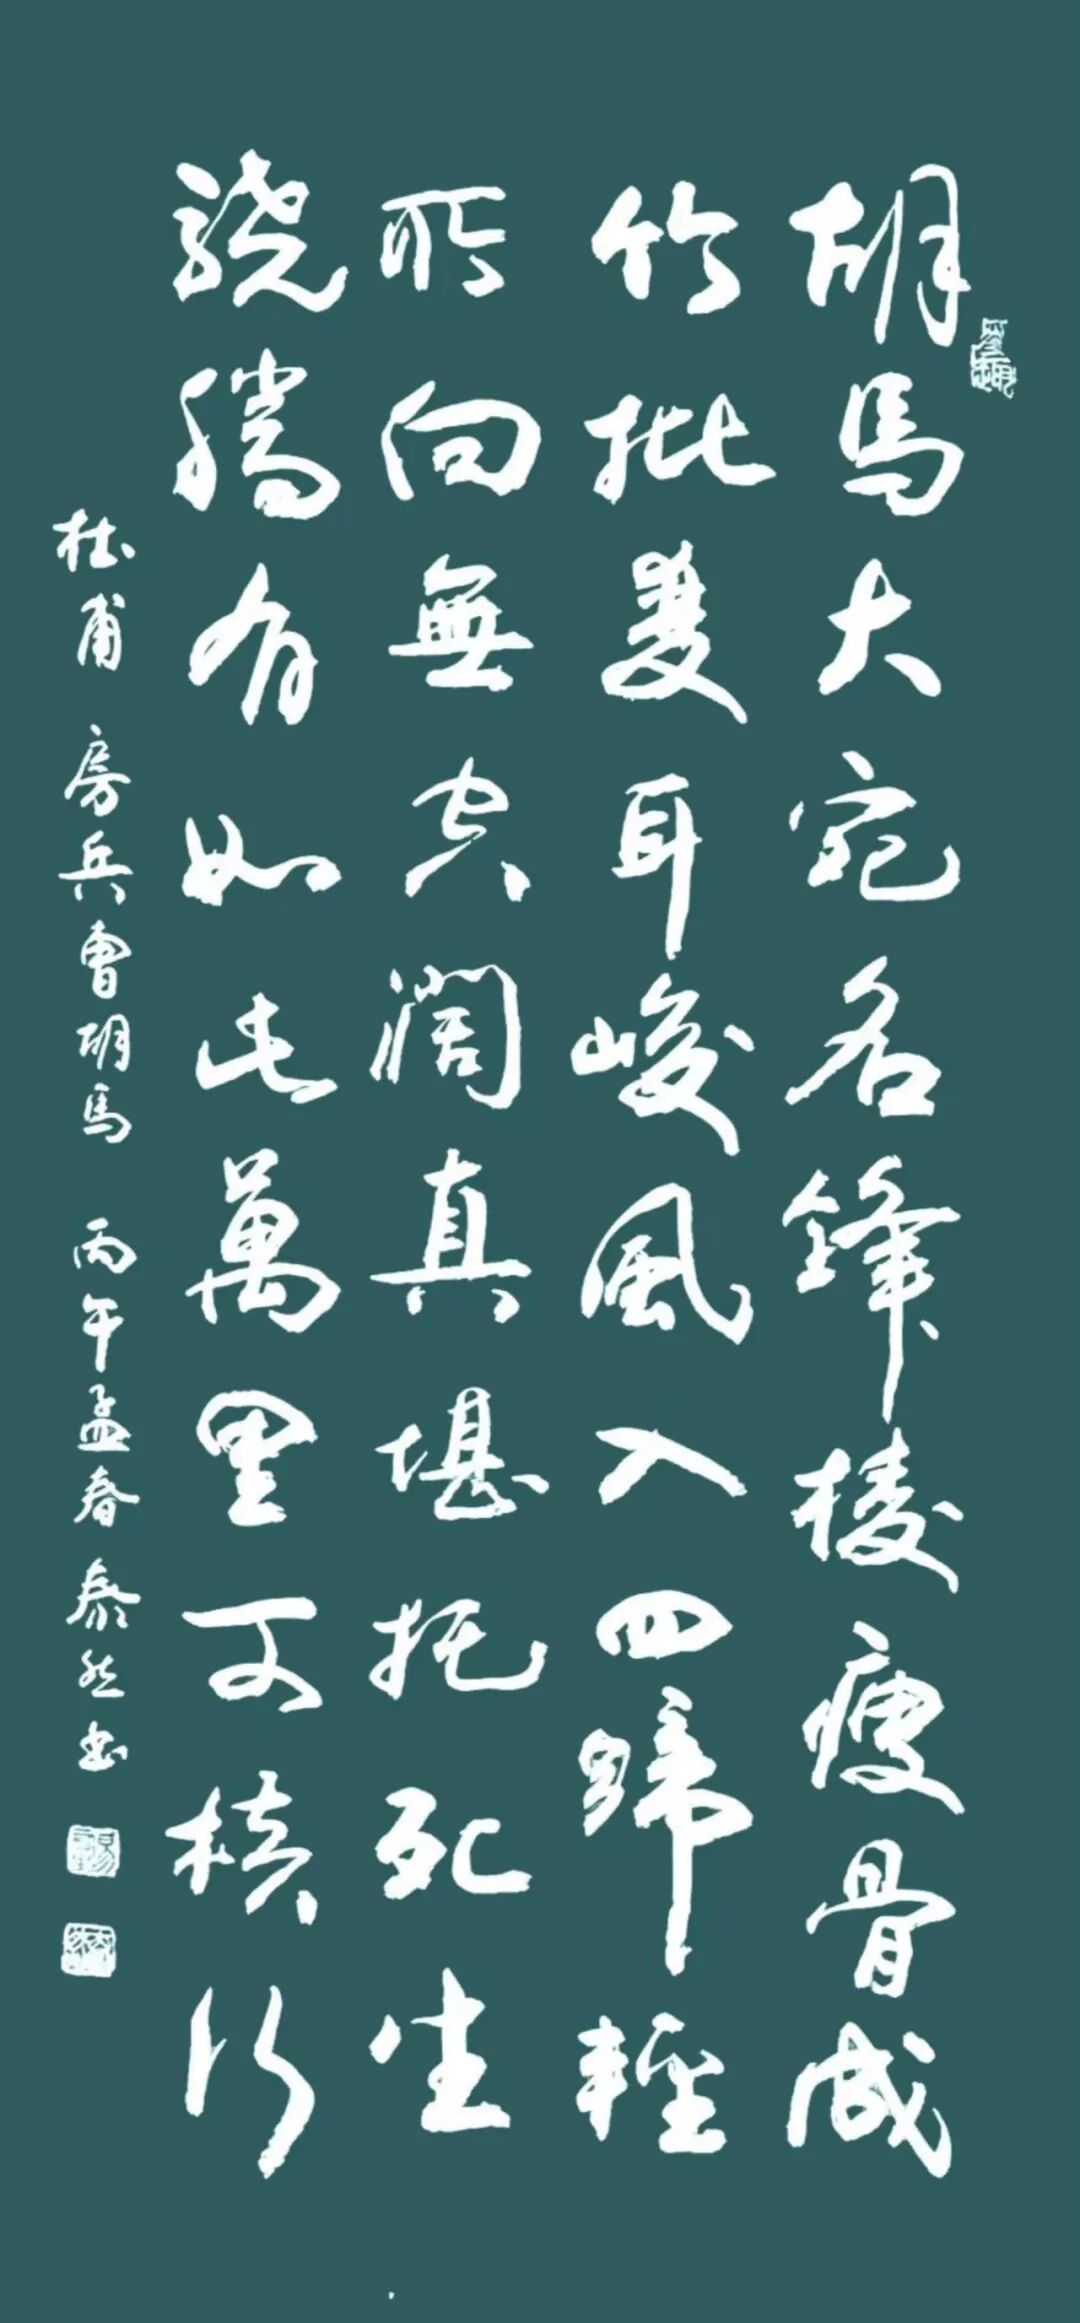 胡馬大宛名鋒棱瘦骨成
竹批雙耳峻風入四蹄輕
所向無空濶真堪托死生
驍騰有如此萬里可橫行
杜甫 房兵曹胡馬 丙午孟春 泰然書